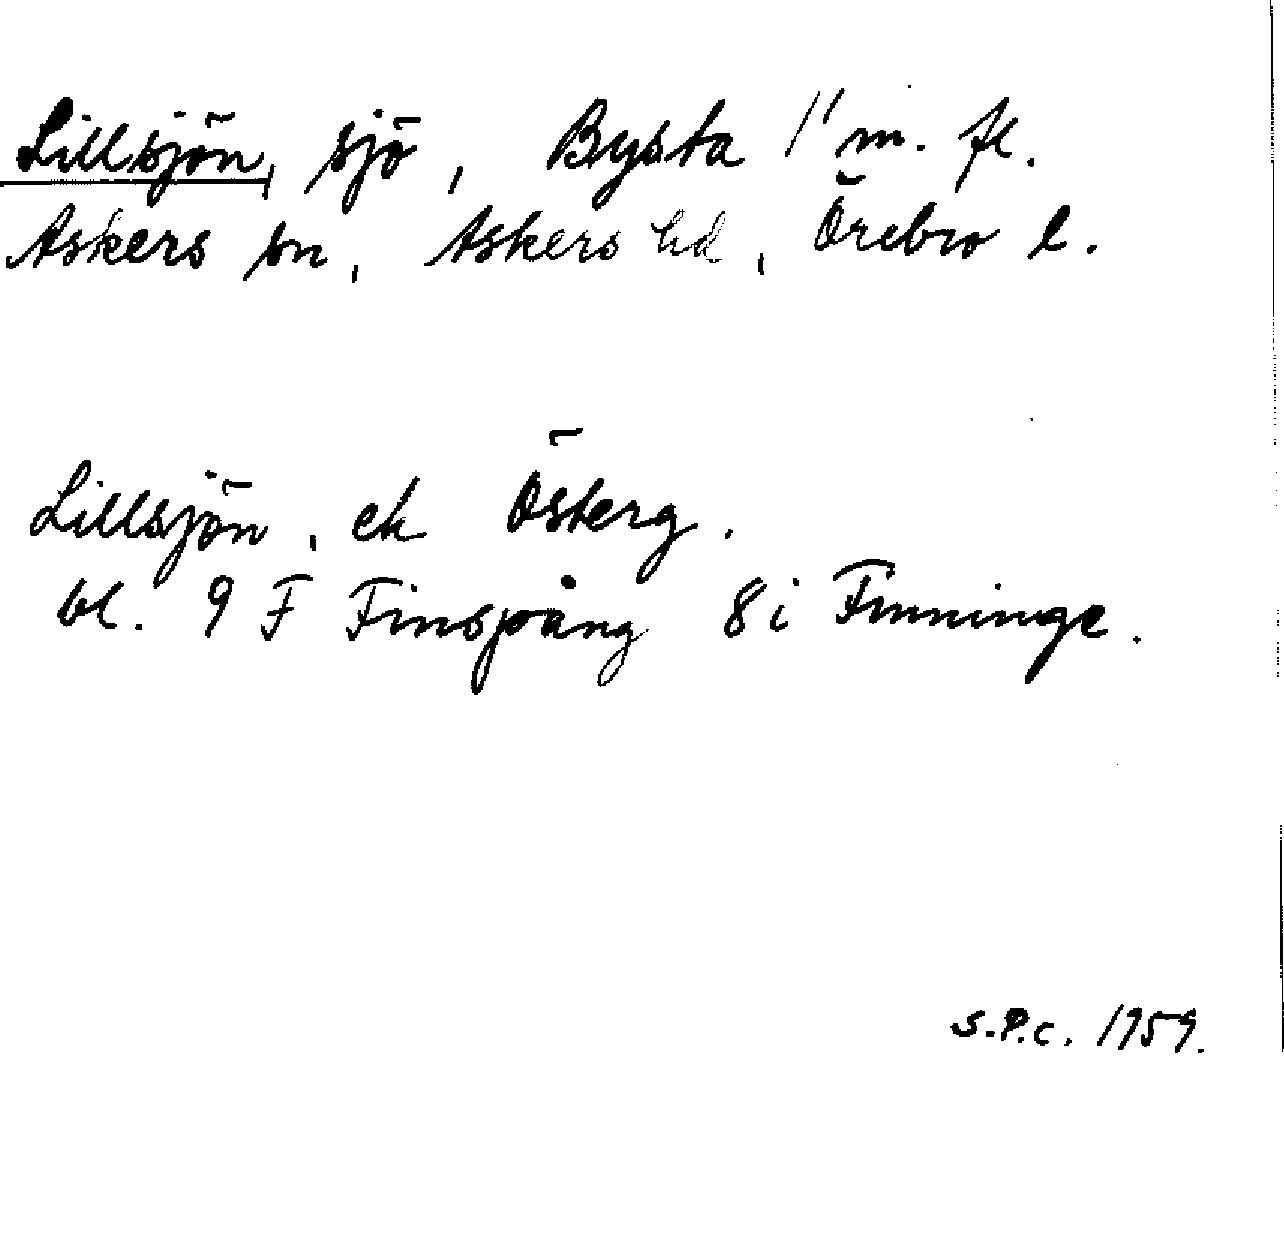 Lillsjön, sjö, Bysta 1¹ m. fl.
Askers sn, Askers hd, Örebro l.
Lillsjön, ek Österg.
bl. 9 F Finspång 8 i Finninge.
S.P.C. 1959.